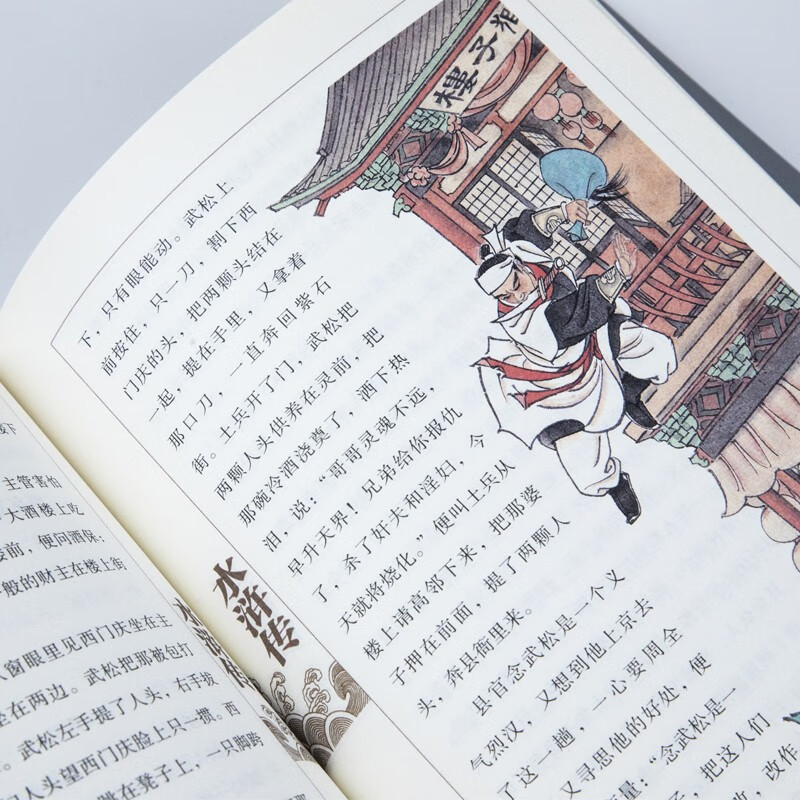 下
主管害怕
大酒楼上吃
前，便问酒保：
般的财主在楼上街
窗眼里见西门庆坐在主
坐在两边。武松把那被包打
武松左手提了人头，右手拔
人头望西门庆脸上只一掼。西
跳在凳子上，一只脚跨
水浒传
子樓
下，只有眼能动。武松上
前按住，只一刀，割下西
门庆的头，把两颗头结在
一起，提在手里，又拿着
那口刀，一直奔回紫石
街。土兵开了门，武松把
两颗人头供养在灵前，把
那碗冷酒浇奠了，洒下热
泪，说：“哥哥灵魂不远，
早升天界！兄弟给你报仇
了，杀了奸夫和淫妇，今
天就将烧化。”便叫土兵从
楼上请高邻下来，把那婆
子押在前面，提了两颗人
头，奔县衙里来。
县官念武松是一个义
气烈汉，又想到他上京去
了这一趟，一心要周全
又寻思他的好处，便
量：“念武松是一
子，把这人们
改作